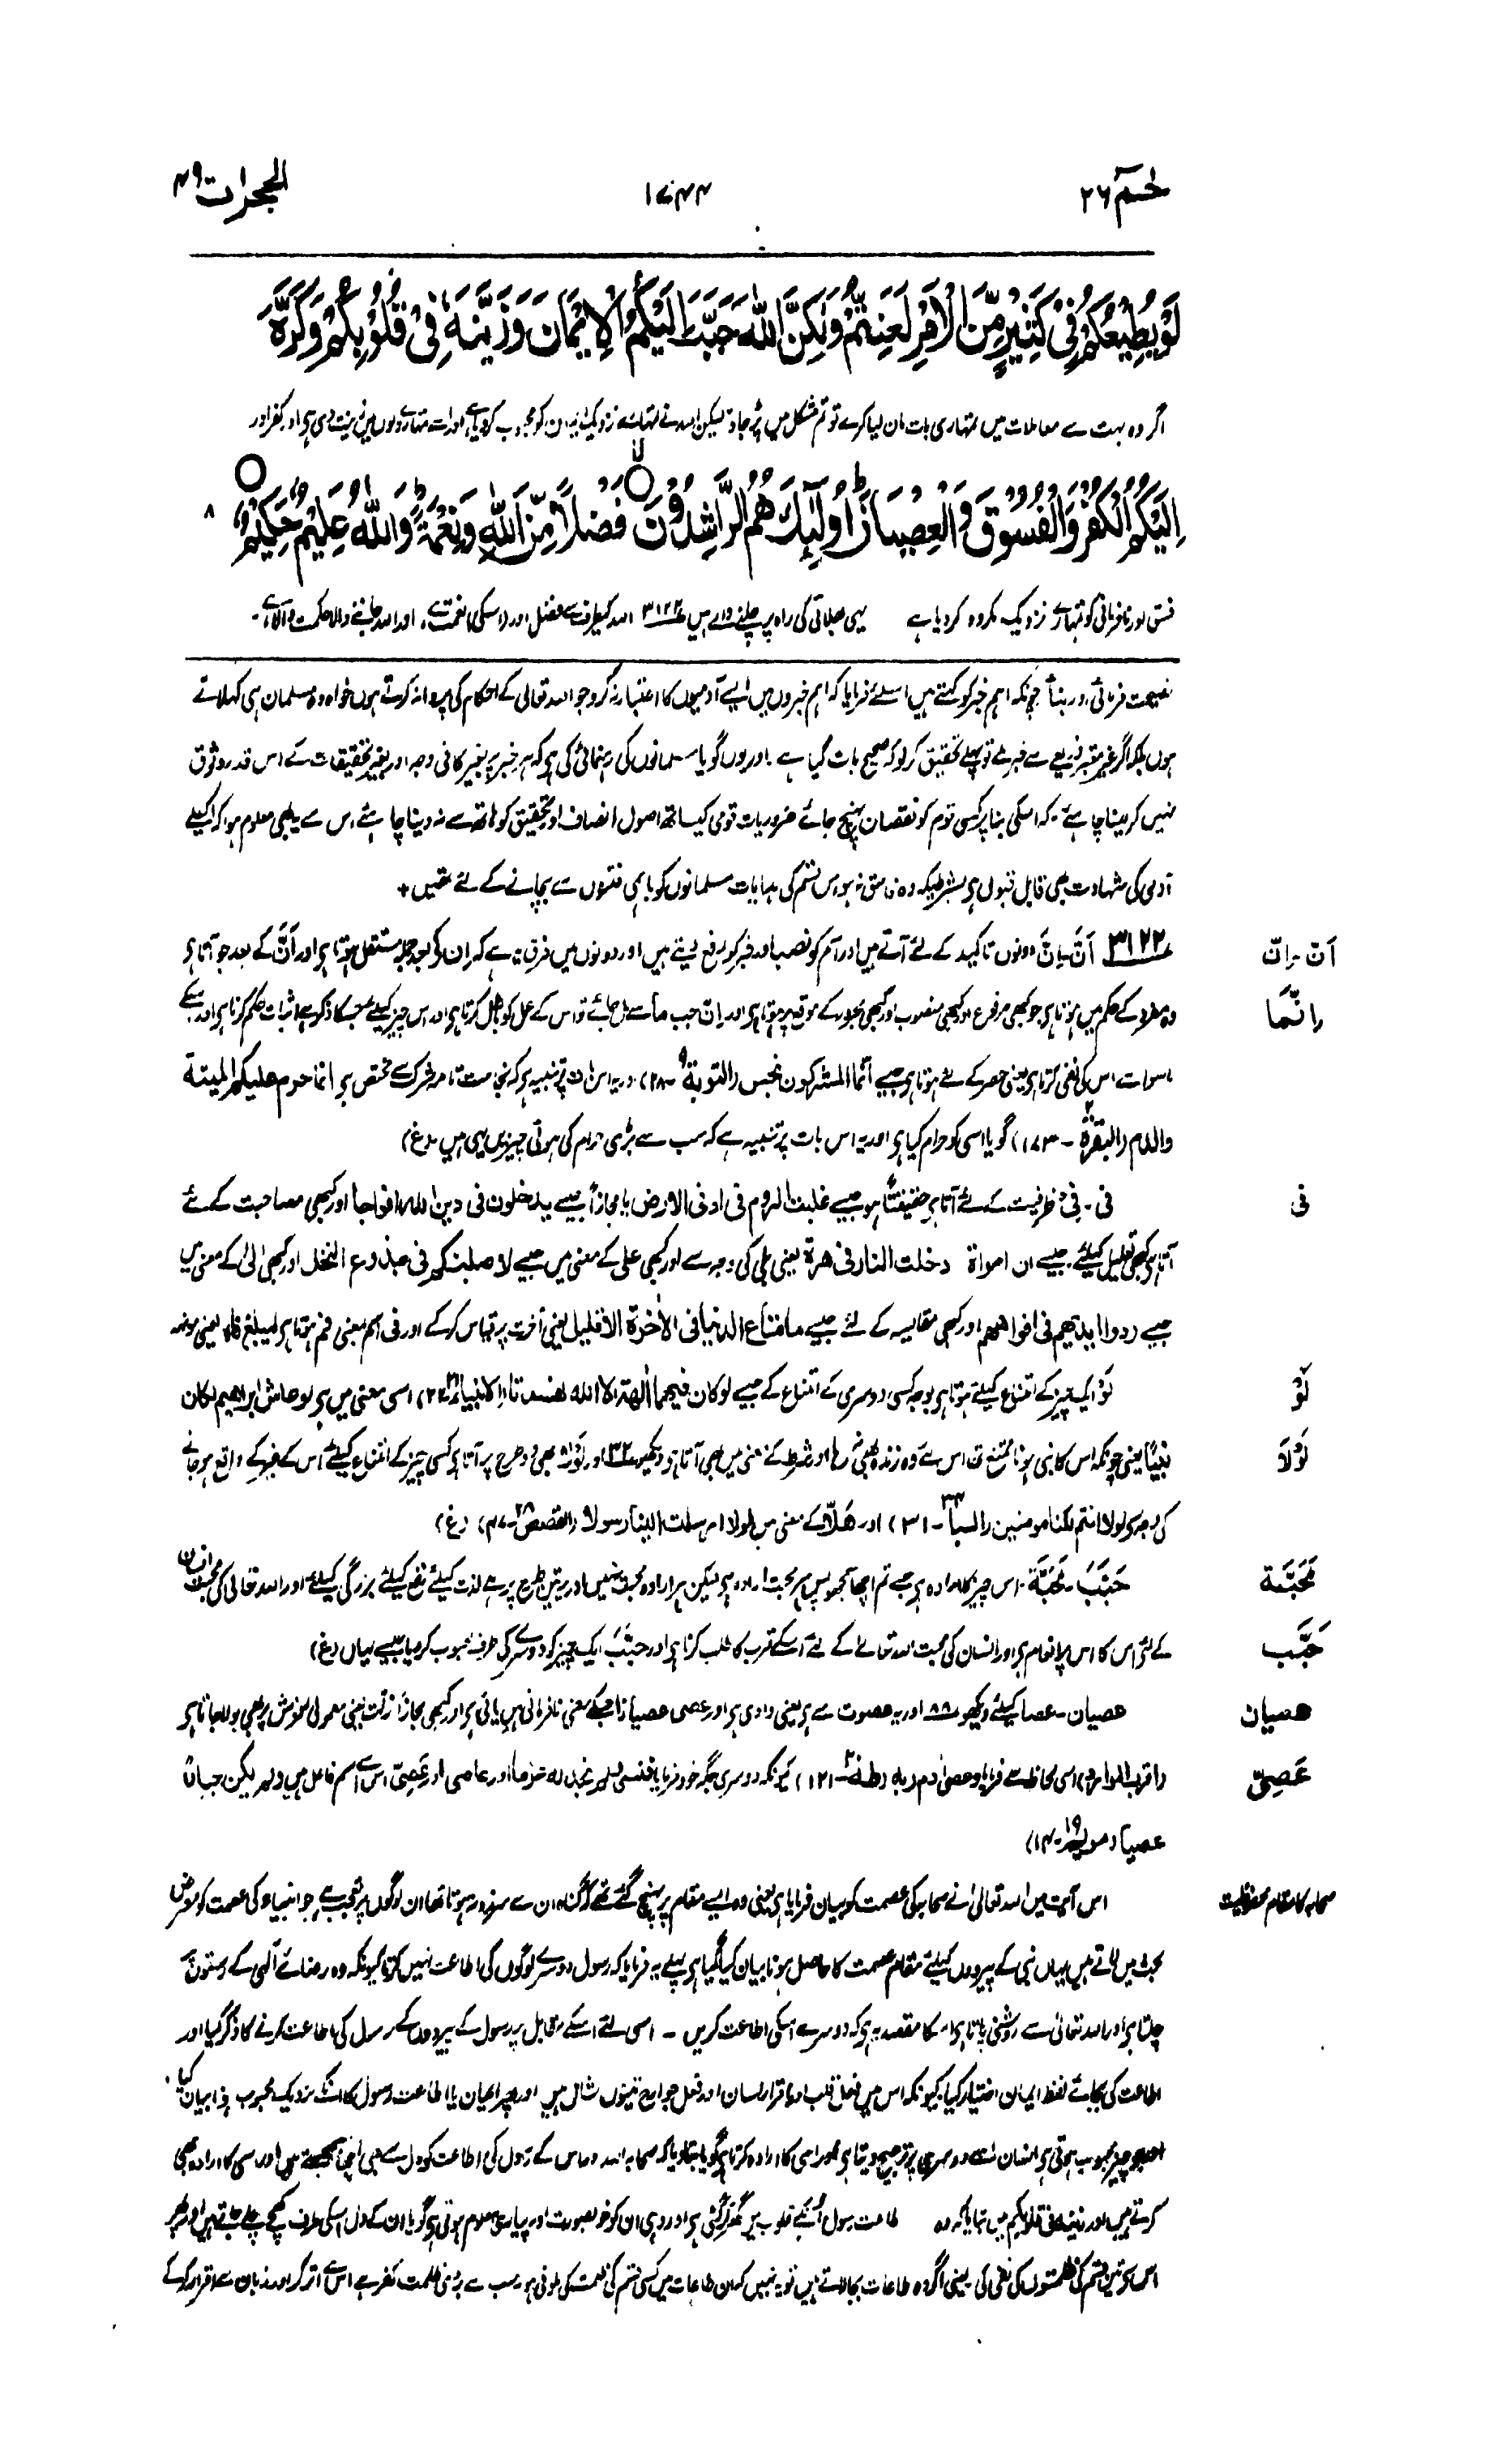 حٰمٓ ۲۶
۱۷۴۴
الحجرات ۴۹
لَوْ يُطِيْعُكُمْ فِيْ كَثِيْرٍ مِّنَ الْاَمْرِ لَعَنِتُّمْ وَلٰكِنَّ اللّٰهَ حَبَّبَ اِلَيْكُمُ الْاِيْمَانَ وَزَيَّنَهٗ فِيْ قُلُوْبِكُمْ وَكَرَّهَ
اگر وہ بہت سے معاملات میں تمہاری بات مان لیا کرے تو تم مشکل میں پڑ جاؤ لیکن اللہ نے تمہارے نزدیک ایمان کو محبوب کر دیا ہے اور اسے تمہارے دلوں میں زینت دی ہی اور کفر اور
اِلَيْكُمُ الْكُفْرَ وَالْفُسُوْقَ وَالْعِصْيَانَ ؕ اُولٰٓئِكَ هُمُ الرَّاشِدُوْنَ ۙ فَضْلًا مِّنَ اللّٰهِ وَنِعْمَةً ؕ وَاللّٰهُ عَلِيْمٌ حَكِيْمٌ ۸
فسق اور نافرمانی کو تمہارے نزدیک مکروہ کر دیا ہے یہی بھلائی کی راہ پر چلنے والے ہیں ۳۱۲۲ اللہ کیطرف سے فضل اور (اسکی) نعمت ہے، اور اللہ جاننے والا حکمت والا ہے۔
نصیحت فرمائی اور نبأ چونکہ اہم خبر کو کہتے ہیں اسلئے فرمایا کہ اہم خبروں میں ایسے آدمیوں کا اعتبار نہ کرو جو اللہ تعالیٰ کے احکام کی پروا نہ کرتے ہوں خواہ وہ مسلمان ہی کہلاتے
ہوں بلکہ اگر غیر معتبر ذریعے سے خبر ملے تو پہلے تحقیق کر لو کہ صحیح بات کیا ہے۔ اور یوں گویا مسلمانوں کی رہنمائی کی ہی کہ ہر خبر پر بغیر کافی وجہ اور بغیر تحقیقات کے اس قدر وثوق
نہیں کر لینا چاہئے۔ کہ اسکی بنا پر کسی قوم کو نقصان پہنچ جائے ضروریات قومی کیساتھ اصول انصاف اور تحقیق کو ہاتھ سے نہ دینا چاہئے اس سے یہ بھی معلوم ہوا کہ اکیلے
آدمی کی شہادت بھی قابل قبول ہی بشرطیکہ وہ فاسق نہ ہو اس قسم کی ہدایات مسلمانوں کو باہمی فتنوں سے بچانے کے لئے تھیں +
اَنّ ۔ اِنّ
۳۱۲۲ اَنَّ۔ اِنَّ دونوں تاکید کے لئے آتے ہیں اور اسم کو نصب اور خبر کو رفع دیتے ہیں اور دونوں میں فرق یہ ہے کہ اِن کے بعد جملہ مستقل ہوتا ہی اور اَنَّ کے بعد جو آتا ہی
اِنَّمَا
وہ مفرد کے حکم میں ہوتا ہی جو کبھی مرفوع اور کبھی منصوب اور کبھی مجرور کے موقع پر ہوتا ہی اور اِن جب ما سے مل جائے تو اس کے عمل کو باطل کرتا ہی اور اس چیز کیلئے جسکا ذکر ہے اثبات حکم کرتا ہی اور اسکے
ماسوا سے اس کی نفی کرتا ہی یعنی حصر کے لئے ہوتا ہی جیسے انّما المشرکون نجس (التوبة ۹۔۲۸) اور یہ اس بات پر تنبیہ ہی کہ نجاست تامہ شرک سے مختص ہی انما حرم علیکم المیتة
والدم (البقرة ۲۔۱۷۳) گویا اسی کو حرام کیا ہی اور یہ اس بات پر تنبیہ ہے کہ سب سے بڑی حرام کی ہوئی چیزیں یہی ہیں۔ (غ)
فی
فی۔ فِیْ ظرفیت کے لئے آتا ہی حقیقتاً ہو جیسے غلبت الروم فی ادنی الارض یا مجازاً جیسے یدخلون فی دین اللہ افواجا اور کبھی مصاحبت کے لئے
آتا ہی کبھی تعلیل کیلئے۔ جیسے ان امراة دخلت النار فی هرة یعنی بلی کی وجہ سے اور کبھی علی کے معنی میں جیسے لاصلبنکم فی جذوع النخل اور کبھی الیٰ کے معنی میں
جیسے ردوا ایدیهم فی افواههم اور کبھی مقایسہ کے لئے جیسے ما متاع الدنیا فی الاٰخرة الا قلیل یعنی آخرت پر قیاس کرکے اور فی اسم بمعنی فم ہوتا ہی لیبلغ فاہ یعنی مونہہ
لَوْ
لَوْ ایک چیز کے امتناع کیلئے ہوتا ہی بوجہ کسی دوسری کے امتناع کے جیسے لوکان فیهما اٰلهة الا اللہ لفسدتا (الانبیاء ۲۱۔۲۲) اسی معنی میں ہی لو عاش ابراهیم لکان
لَوْلَا
نبیًّا یعنی چونکہ اس کا نبی ہونا ممتنع تھا اس لئے وہ زندہ بھی نہ رہا اور شرط کے معنی میں بھی آتا ہی دیکھو ۳۲ اور لَوْلَا بھی دو طرح پر آتا ہی کسی چیز کے امتناع کیلئے اس کے غیر کے واقع ہو جانے
کی وجہ سے لولا انتم لکنا مومنین (السبا ۳۴۔۳۱) اور هَلَّا کے معنی میں لولا ارسلت الینا رسولا (القصص ۲۸۔۴۷) (غ)
مَحَبَّة
حَبَّبَ۔ مَحَبَّة۔ اس چیز کا ارادہ ہی جسے تم اچھا سمجھو پس ہر محبت ارادہ ہی لیکن ہر ارادہ محبت نہیں اور یہ تین طرح پر ہے لذت کیلئے نفع کیلئے بزرگی کیلئے اور اللہ تعالیٰ کی محبت انسان
حَبَّب
کے لئے اس کا اس پر انعام ہی اور انسان کی محبت اللہ تعالےٰ کے لئے اسکے قرب کا طلب کرنا ہی اور حَبَّبَ ایک چیز کو دوسرے کی طرف محبوب کر دیا جیسے یہاں (غ)
عصیان
عصیان۔ عصا کیلئے دیکھو ۸۸ اور یہ عصوت سے ہی یعنی وادی ہی اور عصی عصیاناً جسکے معنی نافرمانی ہیں یائی ہی اور کبھی مجازاً زلت یعنی معمولی لغزش پر بھی بولا جاتا ہی
عَصِیّ
(اقرب الموارد) اسی لحاظ سے فرمایا وعصیٰ اٰدم ربه (طٰهٰ ۲۰۔۱۲۱) کیونکہ دوسری جگہ خود فرمایا فنسی ولم نجد له عزما اور عاصی اور عَصِیّ اس سے اسم فاعل ہیں ولم یکن جبارًا
عصیا (مریم ۱۹۔۱۴)
صحابہ کا مقام محفوظیت
اس آیت میں اللہ تعالیٰ نے صحابہ کی عصمت کو بیان فرمایا ہی یعنی وہ ایسے مقام پر پہنچ گئے تھے کہ گناہ ان سے سرزد نہ ہوتا تھا ان لوگوں پر تعجب ہے جو انبیاء کی عصمت کو معرض
بحث میں لاتے ہیں یہاں نبی کے پیروؤں کیلئے مقام عصمت کا حاصل ہونا بیان کیا گیا ہی پہلے یہ فرمایا کہ رسول دوسرے لوگوں کی اطاعت نہیں کرتا کیونکہ وہ رضائے الٰہی کے رستوں پر
چلتا ہی اور اللہ تعالیٰ سے روشنی پاتا ہی اسکا مقصد یہ ہی کہ دوسرے اسکی اطاعت کریں۔ اسی لئے اسکے مقابل پر رسول کے پیروؤں کے رسول کی اطاعت کرنے کا ذکر کیا اور
اطاعت کی بجائے لفظ ایمان اختیار کیا کیونکہ اس میں فعل قلب اور اقرار لسان اور فعل جوارح تینوں شامل ہیں اور پھر ایمان یا اطاعت رسول کا انکے نزدیک محبوب ہونا بیان کیا۔
اور جو چیز محبوب ہوتی ہی انسان اسے دوسری پر ترجیح دیتا ہی اور اسی کا ارادہ کرتا ہی گویا بتا دیا کہ صحابہ اللہ اور اس کے رسول کی اطاعت کو دل سے بھی اچھا سمجھتے ہیں اور اسی کا ارادہ بھی
کرتے ہیں اور زینه فی قلوبکم میں بتایا کہ وہ اطاعت رسول اُنکے قلوب میں گھر کر گئی ہی اور وہی ان کو خوبصورت اور پیاری معلوم ہوتی ہی گویا ان کے دل اسکی طرف کھچے چلے جاتے ہیں اور پھر
اس پر تین قسم کی ظلمتوں کی نفی کی یعنی اگر وہ طاعات بجا لاتے ہیں تو یہ نہیں کہ ان طاعات میں کسی قسم کی ظلمت کی ملونی ہو سب سے بڑی ظلمت کفر ہے اس سے اتر کر اور زبان سے اقرار کر کے